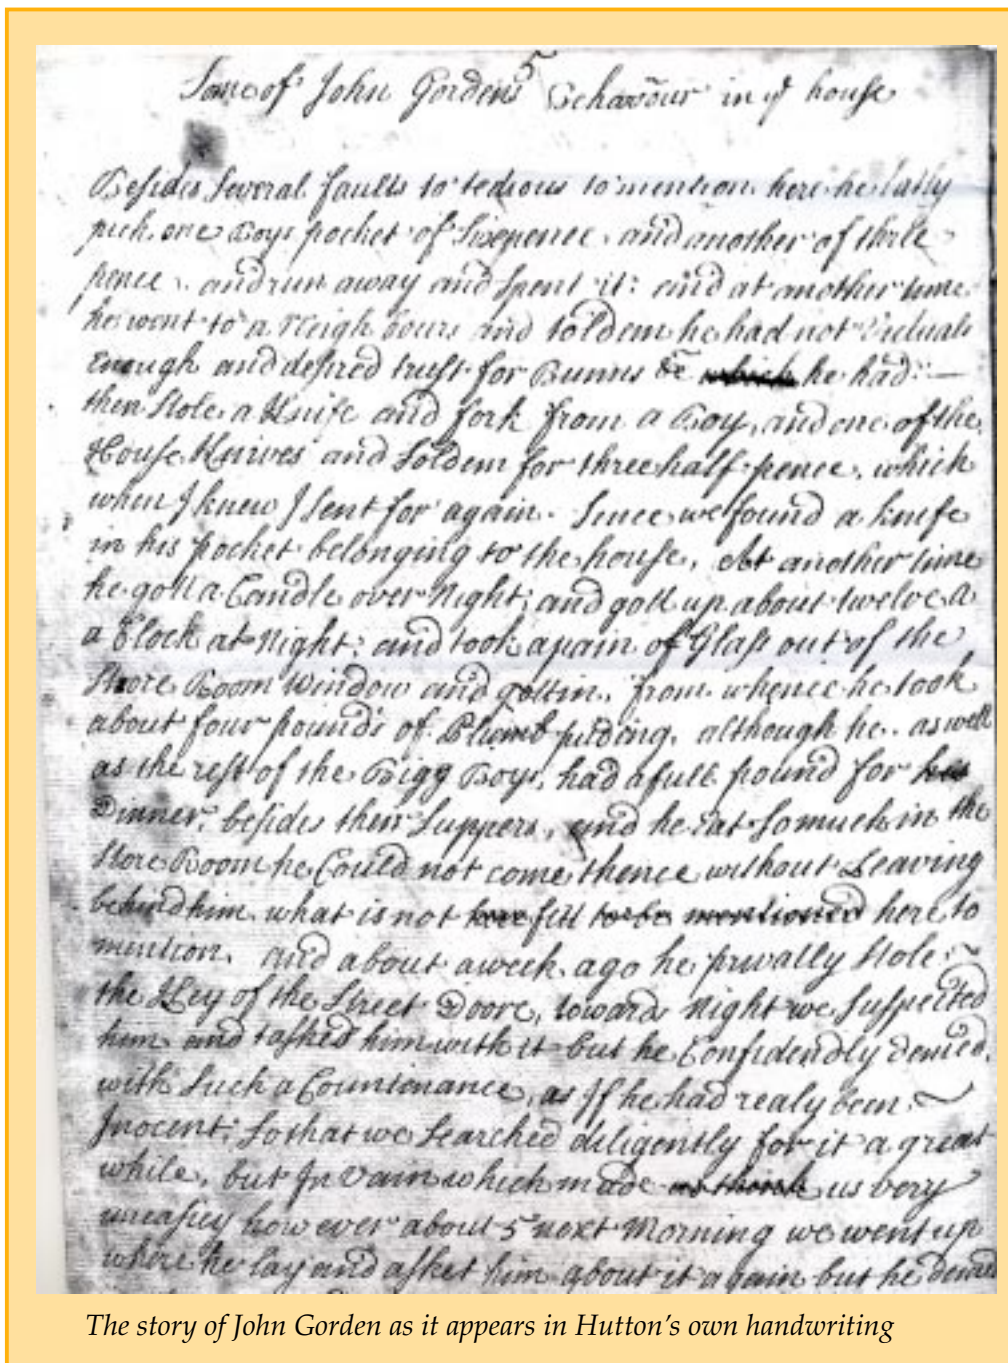 5
Some of John Gordens Behaviour in ye house
Besides several faults to tedious to mention here he lately
pick one Boys pocket of Sixpence, and another of three
pence, and run away and spent it: and at another time
he went to a Neighbours and told em he had not victuals
enough and desired trust for Bunns &c which he had: —
then stole a Knife and fork from a Boy, and one of the
House Knives and sold em for three half-pence, which
when J knew J sent for again. Since we found a knife
in his pocket belonging to the house. At another time
he gott a Candle over Night; and gott up about twelve a
a Clock at Night: and took a pain of Glass out of the
Store Room Window and gott in, from whence he took
about four pounds of Plumb puding, although he, as well
as the rest of the Bigg Boys, had a full pound for his
Dinner, besides their Suppers, and he eat so much in the
Store Room he Could not come thence without Leaving
behind him what is not here fitt to be mentioned here to
mention. and about a week ago he privatly stole ~
the Key of the Street Doore, towards Night we Suspected
him and tasked him with it but he Confidendly denied,
with Such a Countenance, as Jf he had realy been ~
Jnocent; so that we Searched diligently for it a great
while, but Jn Vain which made us think us very
uneasiey however about 5 next Morning we went up
where he lay and asket him about it again but he denied
The story of John Gorden as it appears in Hutton's own handwriting